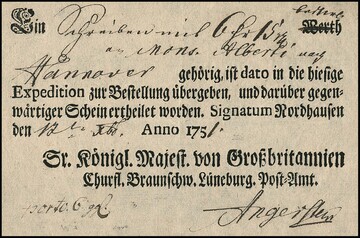 Ein Schreiben mit 6 Thr 15 Werth
an Mons. Alberti nach
Hannover gehörig, ist dato in die hiesige
Expedition zur Bestellung übergeben, und darüber gegen-
wärtiger Schein ertheilet worden. Signatum Nordhausen
den 12 Anno 1751.
Sr. Königl. Majest. von Großbritannien
Churfl. Braunschw. Lüneburg. Post-Amt.
porto. 6 ggl.
Angerstein